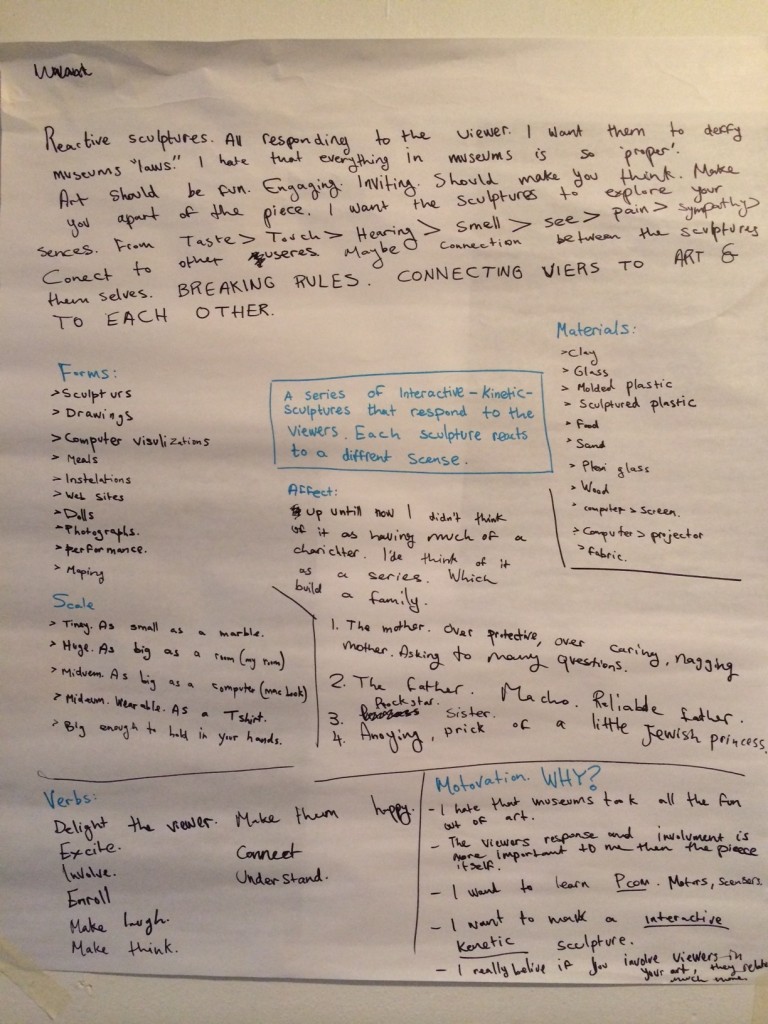 Reactive sculptures. All responding to the viewer. I want them to deffy
museums "laws." I hate that everything in museums is so 'proper'.
Art should be fun. Engaging. Inviting. Should make you think. Make
you apart of the piece. I want the sculptures to explore your
sences. From Taste > Touch > Hearing > Smell > see > pain > sympathy >
Conect to other useres. Maybe connection between the sculptures
them selves. BREAKING RULES. CONNECTING VIERS TO ART &
TO EACH OTHER.
Forms:
> Sculpturs
> Drawings
> Computer visulizations
> Meals
- Instelations
> Web sites
> Dolls
- Photographs.
> performance.
> Maping
Scale
> Tiney. As small as a marble.
> Huge. As big as a room (my room)
> Miduem. As big as a computer (mac book)
> Midaum. Wearable. As a Tshirt.
> Big enough to hold in your hands.
A series of Interactive-Kinetic-
Sculptures that respond to the
viewers. Each sculpture reacts
to a diffrent scense.
Affect:
up untill now I didn't think
of it as having much of a
charichter. I'de think of it
as a series. Which
build a family.
1. The mother. Over protective, over caring, nagging
mother. Asking to many questions.
2. The father. Macho. Reliable father.
3. Rockstar. Sister.
4. Anoying, prick of a little Jewish princess.
Materials:
> Clay
> Glass
> Molded plastic
> Sculptured plastic
> Food
> Sand
> Plexi glass
> Wood
> computer > screen.
> Computer > projector
> fabric.
Verbs:
Delight the viewer. Make them happy.
Excite. Connect
Involve. Understand.
Enroll
Make laugh.
Make think.
Motovation. WHY?
- I hate that museums took all the fun
out of art.
- The viewers response and involvment is
more important to me then the pieece
itself.
- I want to learn Pcom. Motors, scensers.
- I want to mak a interactive
Kenetic sculpture.
- I really belive if you involve viewers in
your art, they relate
much more.